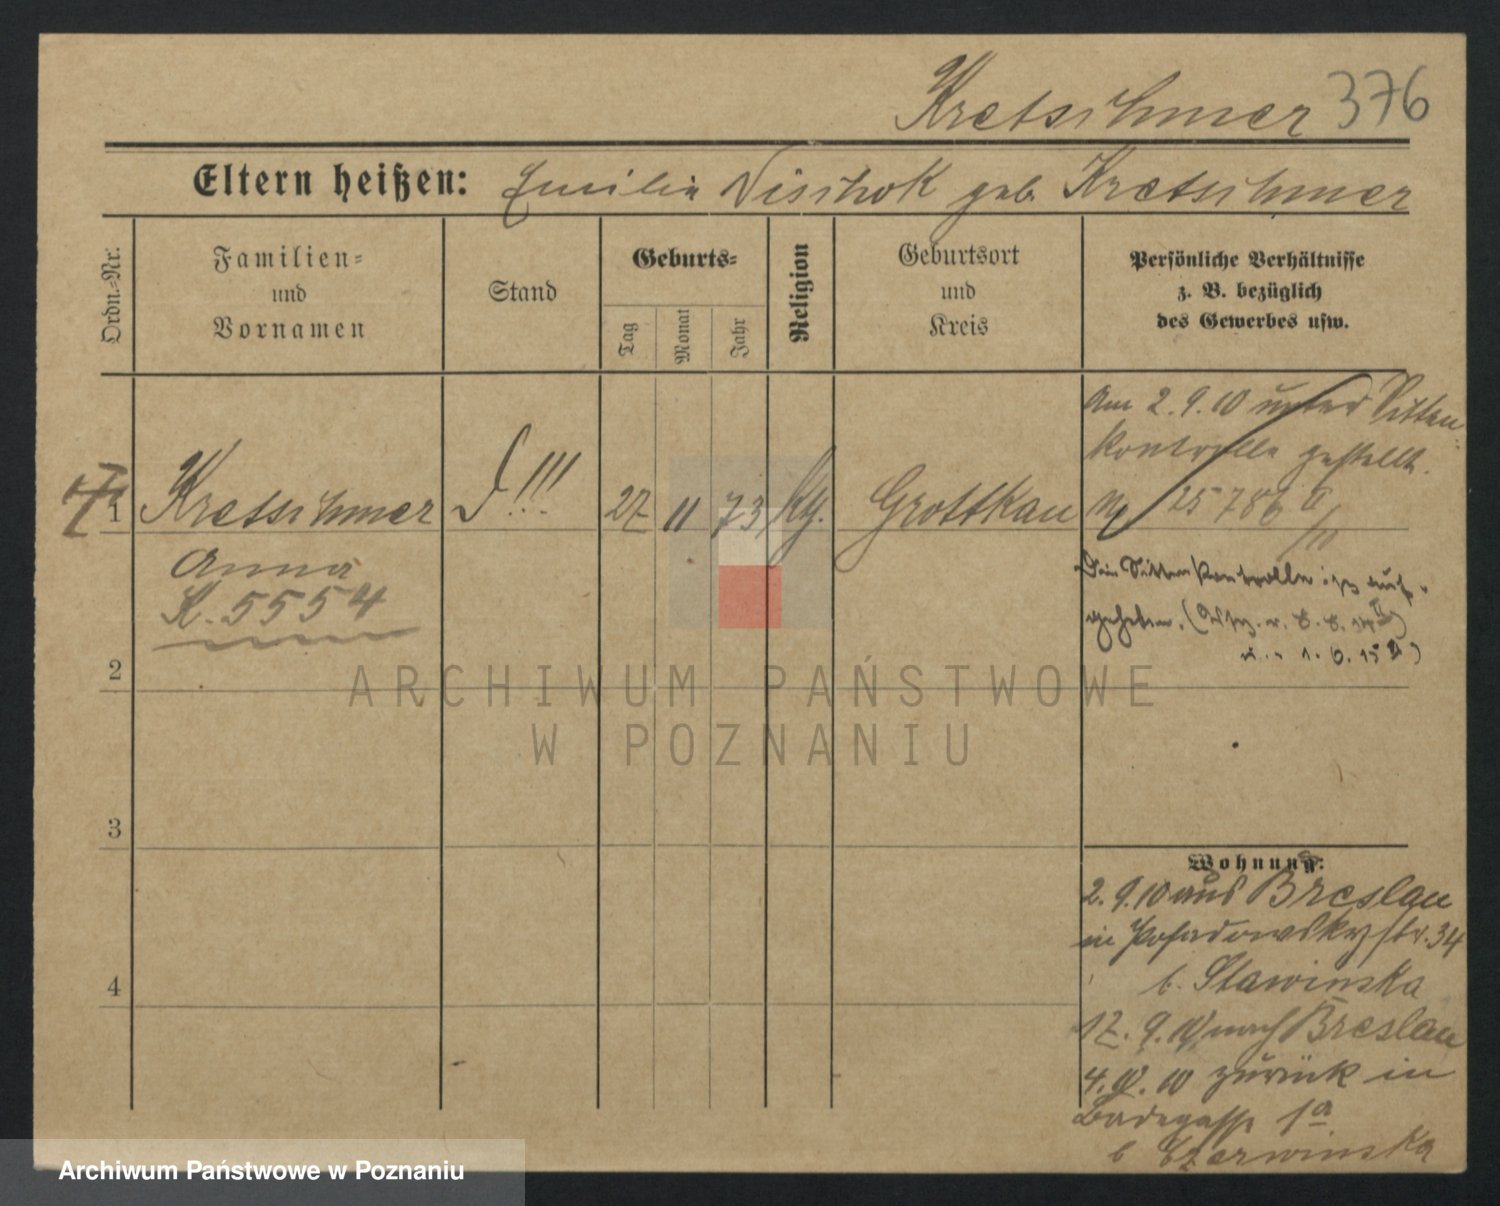 Kretschmer 376
Eltern heißen: Emilie Nischok geb. Kretschmer
Ordn.-Nr.
Familien-
und
Vornamen
Stand
Geburts-
Tag
Monat
Jahr
Religion
Geburtsort
und
Kreis
Persönliche Verhältnisse
z. B. bezüglich
des Gewerbes usw.
1
Kretschmer
27 11 73
Grottkau
Anna
K. 5554
Am 2.9.10 unter Sitten
kontrolle gestellt.
25786
Die Sittenkontrolle ist auf-
gehoben.
2
3
4
Wohnung:
2.9.10 aus Breslau
in Posadowskystr. 34
b. Stawinska
17. 9. 10 nach Breslau
zurück in
Badegasse 1a
b Czerwinska
ARCHIWUM PAŃSTWOWE
W POZNANIU
Archiwum Państwowe w Poznaniu